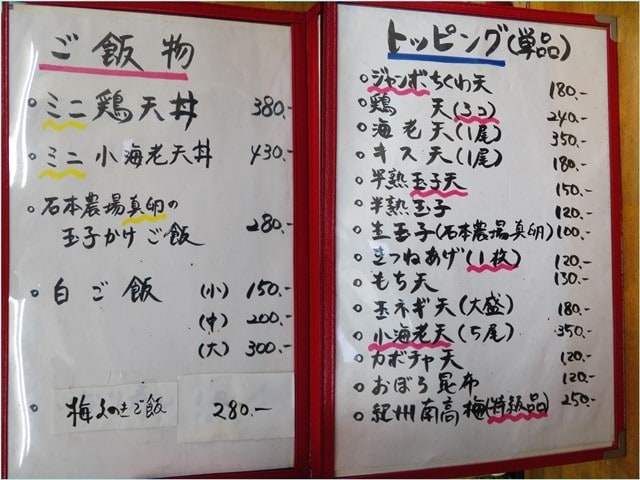 ご飯物
○ミニ鶏天丼 380.-
○ミニ小海老天丼 430.-
○石本農場真卵の
玉子かけご飯 280.-
○白ご飯 (小) 150.-
(中) 200.-
(大) 300.-
○梅 ご飯 280.-
トッピング(単品)
○ジャンボちくわ天 180.-
○鶏 天(3コ) 240.-
○海老天(1尾) 350.-
○キス天(1尾) 180.-
○半熟玉子天 150.-
○半熟玉子 120.-
○生玉子(石本農場真卵) 100.-
○きつねあげ(1枚) 120.-
○もち天 130.-
○玉ネギ天(大盛) 180.-
○小海老天(5尾) 350.-
○カボチャ天 120.-
○おぼろ昆布 120.-
○紀州南高梅(特級品) 250.-